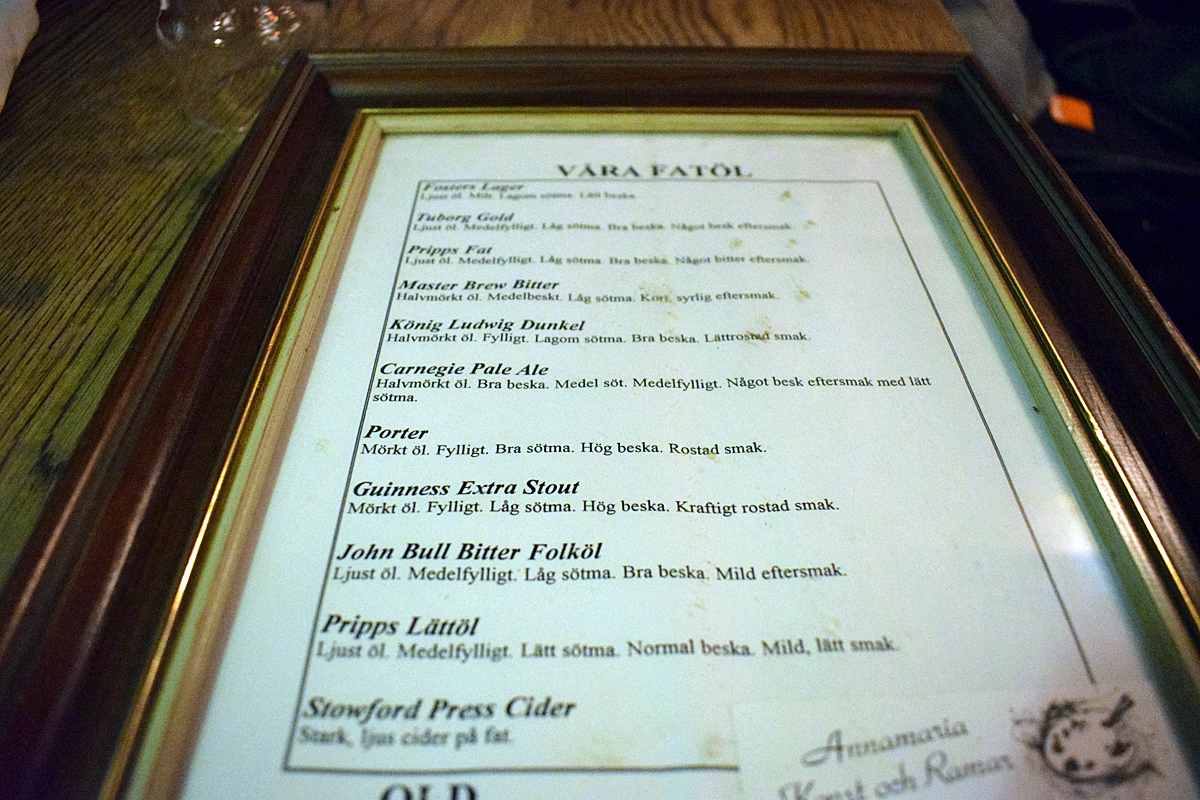 VÅRA FATÖL
Fosters Lager
Ljust öl. Milt. Lagom sötma. Lätt beska.
Tuborg Gold
Ljust öl. Medelfylligt. Låg sötma. Bra beska. Något besk eftersmak.
Pripps Fat
Ljust öl. Medelfylligt. Låg sötma. Bra beska. Något bitter eftersmak.
Master Brew Bitter
Halvmörkt öl. Medelbeskt. Låg sötma. Kort, syrlig eftersmak.
König Ludwig Dunkel
Halvmörkt öl. Fylligt. Lagom sötma. Bra beska. Lättrostad smak.
Carnegie Pale Ale
Halvmörkt öl. Bra beska. Medel söt. Medelfylligt. Något besk eftersmak med lätt
sötma.
Porter
Mörkt öl. Fylligt. Bra sötma. Hög beska. Rostad smak.
Guinness Extra Stout
Mörkt öl. Fylligt. Låg sötma. Hög beska. Kraftigt rostad smak.
John Bull Bitter Folköl
Ljust öl. Medelfylligt. Låg sötma. Bra beska. Mild eftersmak.
Pripps Lättöl
Ljust öl. Medelfylligt. Lätt sötma. Normal beska. Mild, lätt smak.
Stowford Press Cider
Stark, ljus cider på fat.
Annamaria
Konst och Ramar
OLD